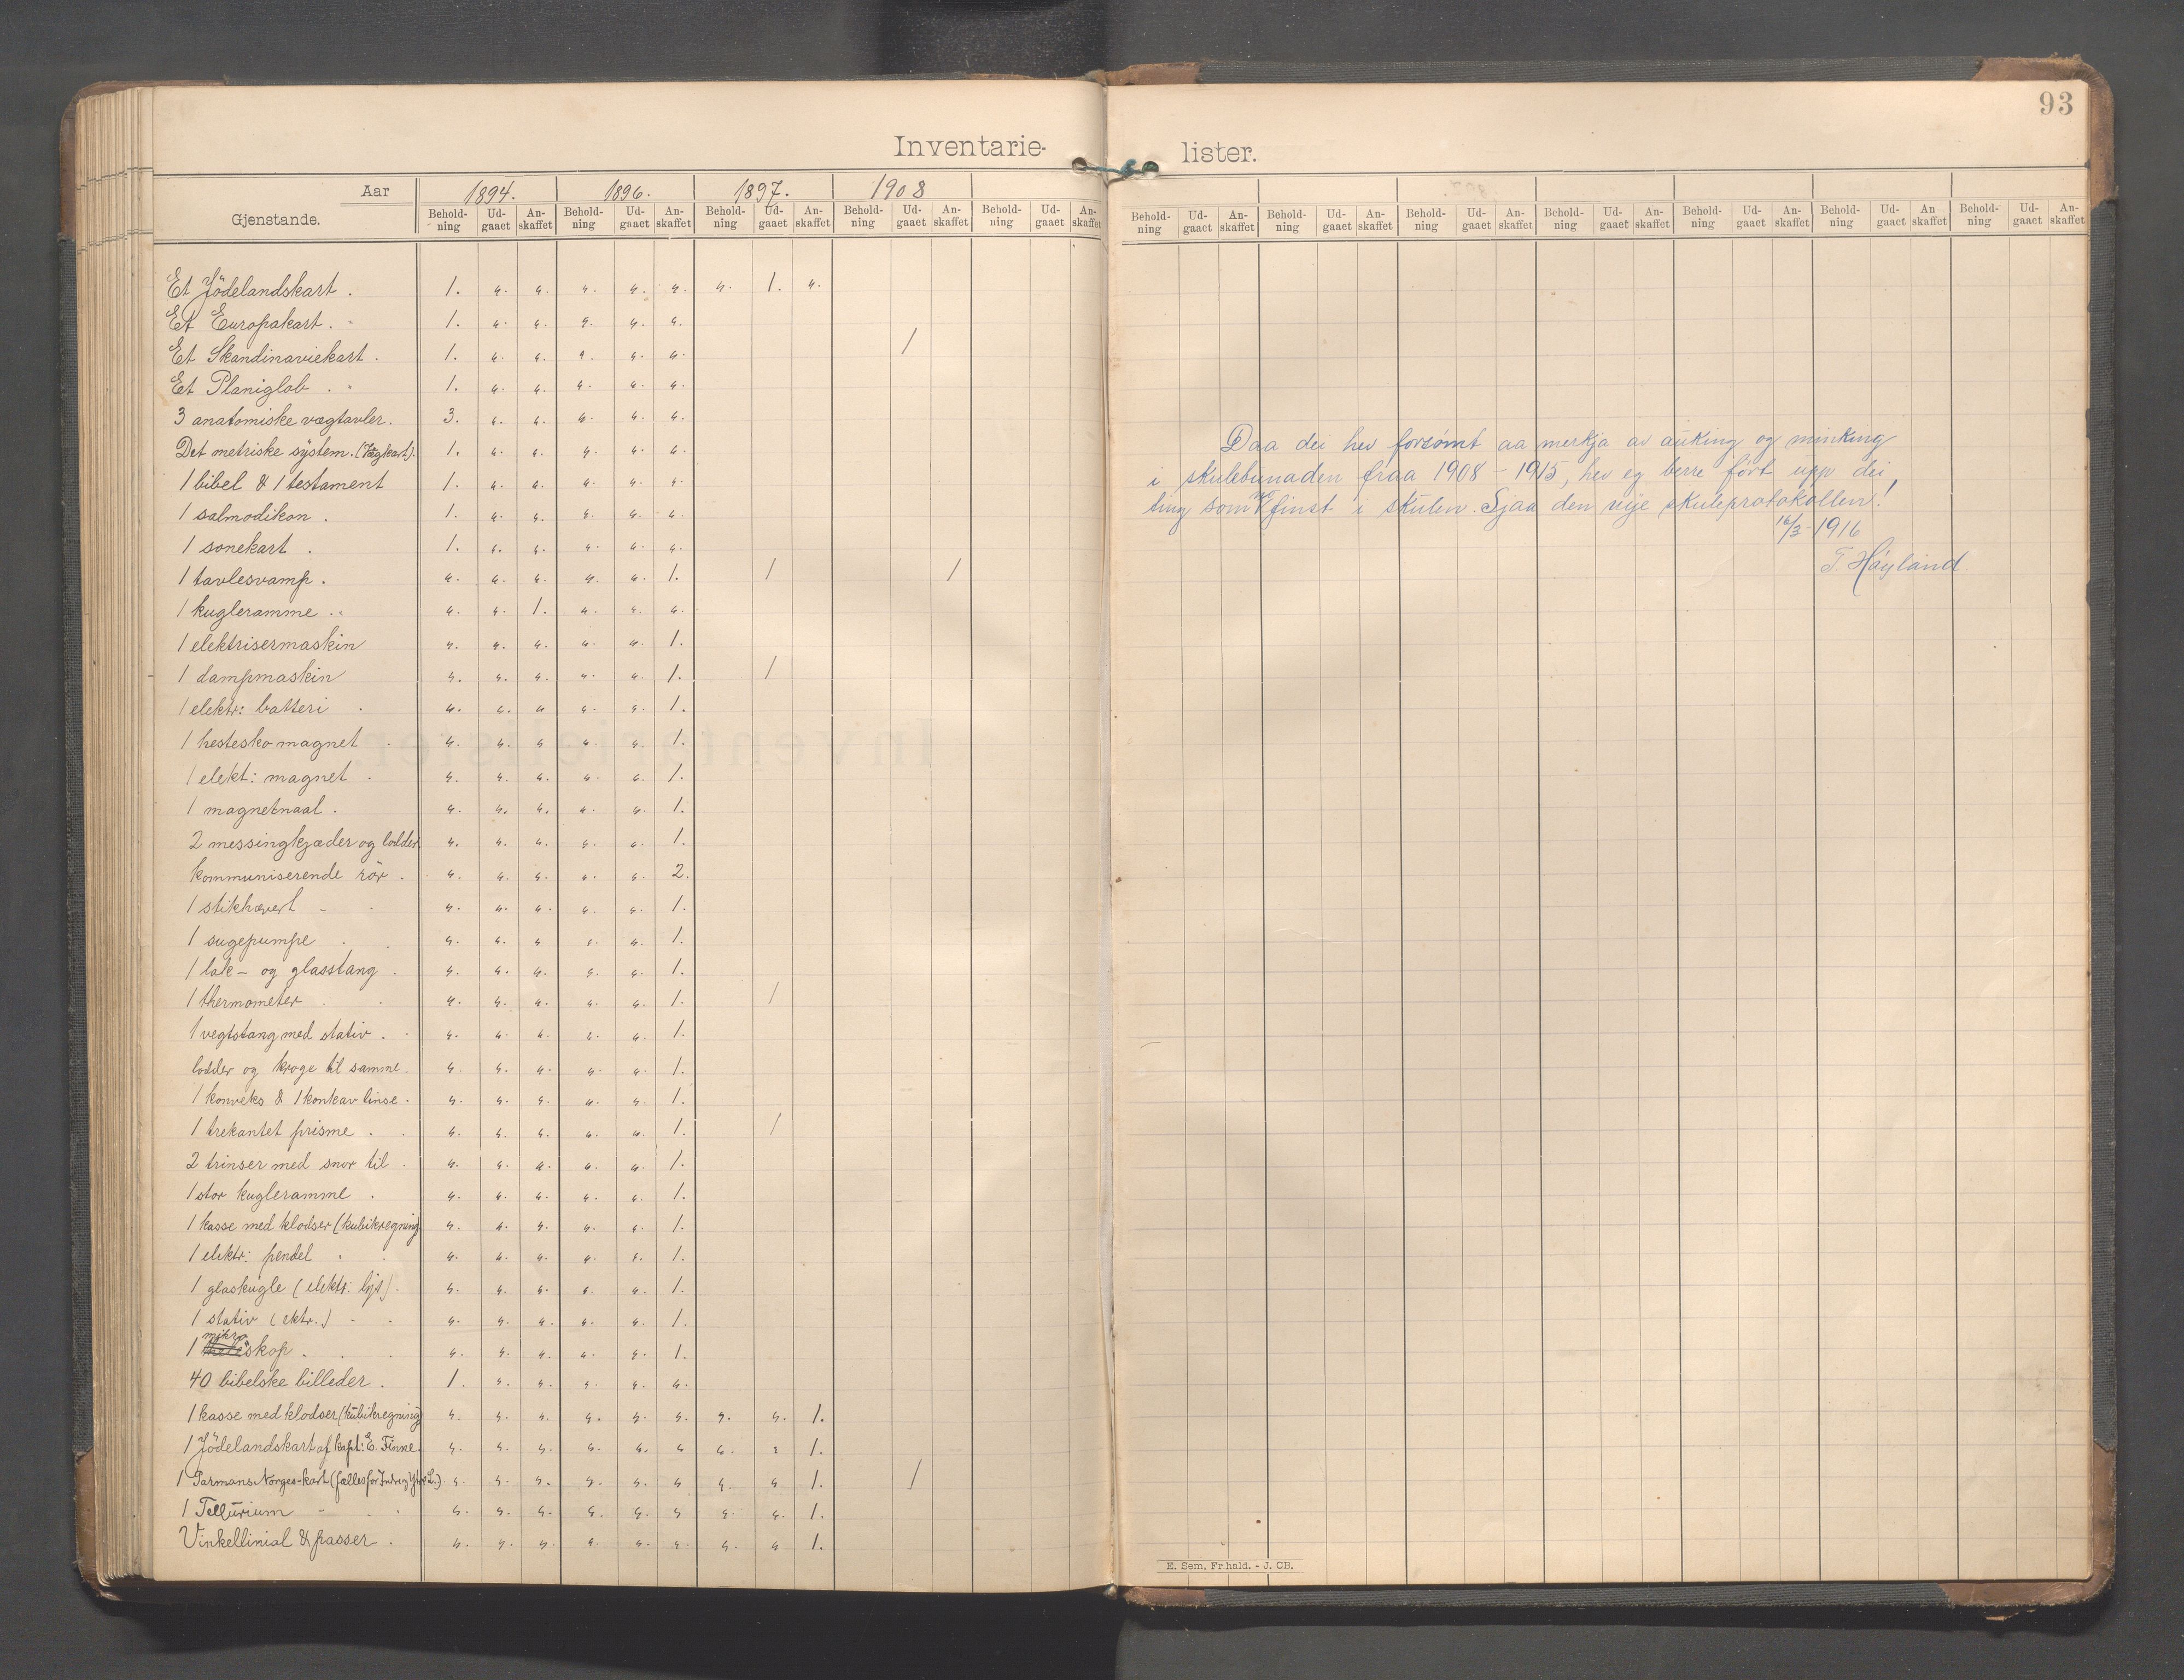 93
Inventarie- lister.
Aar 1894. 1896. 1897. 1908
Gjenstande. Behold-ning Ud-gaaet An-skaffet Behold-ning Ud-gaaet An-skaffet Behold-ning Ud-gaaet An-skaffet Behold-ning Ud-gaaet An-skaffet Behold-ning Ud-gaaet An-skaffet Behold-ning Ud-gaaet An-skaffet Behold-ning Ud-gaaet An-skaffet Behold-ning Ud-gaaet An-skaffet Behold-ning Ud-gaaet An-skaffet Behold-ning Ud-gaaet An-skaffet Behold-ning Ud-gaaet An skaffet Behold-ning Ud-gaaet An-skaffet
Et Jödelandskart . 1. " " " " " " 1. "
Et Europakart . 1. " " " " "
Et Skandinaviekart . 1. " " " " " 1
Et Planiglob . 1. " " " " "
3 anatomiske vægtavler. 3. " " " " "
Det metriske system. (Vægkart). 1. " " " " "
1 bibel & 1 testament 1. " " " " "
1 salmodikon . 1. " " " " "
1 sonekart . 1. " " " " "
1 tavlesvamp . " " " " " 1. 1 1
1 kugleramme . " " 1. " " "
1 elektrisermaskin " " " " " 1.
1 dampmaskin " " " " " 1. 1
1 elektr: batteri . " " " " " 1.
1 hestesko magnet . " " " " " 1.
1 elekt: magnet . " " " " " 1.
1 magnetnaal . " " " " " 1.
2 messingkjæder og lodder " " " " " 1.
kommuniserende rör . " " " " " 2.
1 stikhævert " " " " " 1.
1 sugepumpe . " " " " " 1.
1 lak- og glasstang . " " " " " 1.
1 thermometer . " " " " " 1. 1
1 vegtstang med stativ . " " " " " 1.
lodder og kroge til samme . " " " " " 1.
1 konveks & 1 konkav linse . " " " " " 1.
1 trekantet prisme . " " " " " 1. 1
2 trinser med snor til . " " " " " 1.
1 stor kugleramme . " " " " " 1.
1 kasse med klodser (kubikregning) " " " " " 1.
1 elektr: pendel . " " " " " 1.
1 glaskugle (elektr: lys) . " " " " " 1.
1 stativ (ektr.) " " " " " 1.
1 mikroskop . " " " " " 1.
40 bibelske billeder . 1. " " " " "
1 kasse med klodser (kubikregning) " " " " " " " " 1.
1 Jödelandskart af kapt: E. Finne. " " " " " " " " 1.
1 Parmans Norges-kart (fælles for Indre og Ytre L.) " " " " " " " " 1. 1
1 Tellurium " " " " " " " " 1.
Vinkellinial & passer . " " " " " " " " 1.
Daa dei hev forsömt aa merkja av auking og minking
i skulebunaden fraa 1908 – 1915, hev eg berre fört upp dei
ting som no finst i skulen. Sjaa den nye skuleprotokollen!
16/3 1916
T. Höyland
E. Sem, Fr.hald. - J. CB.